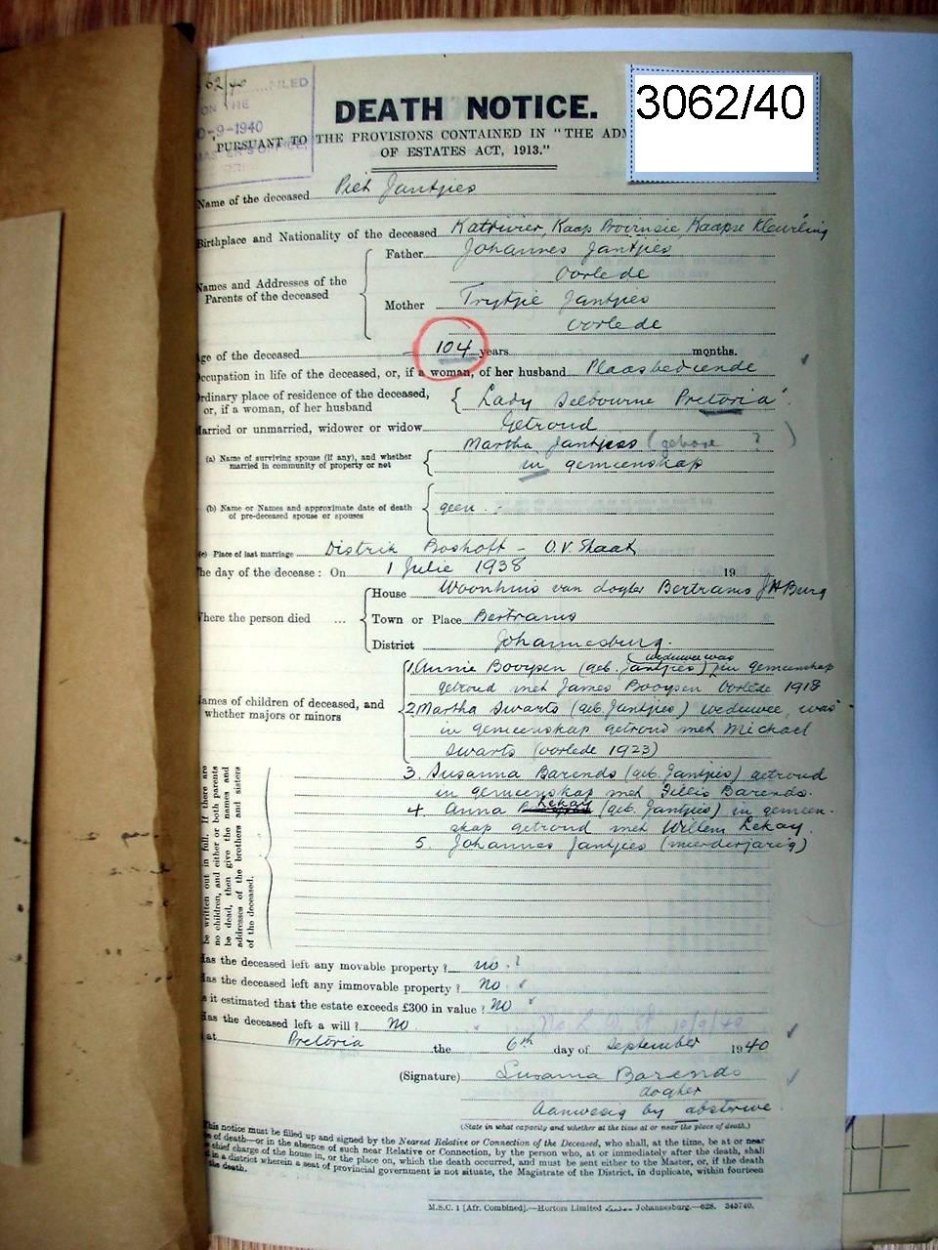 3062/40
62/40 FILED
ON THE
0-9-1940
MASTER'S OFFICE
DEATH NOTICE.
PURSUANT TO THE PROVISIONS CONTAINED IN "THE ADM
OF ESTATES ACT, 1913."
Name of the deceased Piet Jantjies
Birthplace and Nationality of the deceased Katrivier, Kaap Provinsie, Kaapse Kleurling
Names and Addresses of the Parents of the deceased
Father Johannes Jantjies
Oorlede
Mother Trytjie Jantjies
Oorlede
ge of the deceased 104 years months.
ccupation in life of the deceased, or, if a woman, of her husband Plaasbediende
rdinary place of residence of the deceased, or, if a woman, of her husband Lady Selbourne Pretoria
arried or unmarried, widower or widow Getroud
(a) Name of surviving spouse (if any), and whether married in community of property or not
Martha Jantjies (gebore ? )
in gemeenskap
(b) Name or Names and approximate date of death of pre-deceased spouse or spouses
geen
(c) Place of last marriage Distrik Boshoff - O.V. Staat
he day of the decease: On 1 Julie 1938 19
here the person died ...
House Woonhuis van dogter Bertrams JHBurg
Town or Place Bertrams
District Johannesburg.
ames of children of deceased, and whether majors or minors
weduwee was
1. Annie Booysen (geb. Jantjies) in gemeenskap
getroud met James Booysen Oorlede 1918
2 Martha Swarts (geb. Jantjies) weduwee, was
in gemeenskap getroud met Michael
Swarts (oorlede 1923)
3. Susanna Barends (geb. Jantjies) getroud
in gemeenskap met Gillis Barends.
4. Anna Lekay (geb. Jantjies) in gemeen-
skap getroud met Willem Lekay.
5 Johannes Jantjies (meerderjarig)
be written out in full. If there are
no children, and either or both parents
be dead, then give the names and
addresses of the brothers and sisters
of the deceased.
as the deceased left any movable property? no. ?
as the deceased left any immovable property? No.
s it estimated that the estate exceeds £300 in value? NO
as the deceased left a will? No
10/9/40
at Pretoria the 6th day of September 1940
(Signature) Susanna Barends
dogter
Aanwesig by absterwe
(State in what capacity and whether at the time at or near the place of death.)
This notice must be filled up and signed by the Nearest Relative or Connection of the Deceased, who shall, at the time, be at or near
e of death—or in the absence of such near Relative or Connection, by the person who, at or immediately after the death, shall
chief charge of the house in, or the place on, which the death occurred, and must be sent either to the Master, or, if the death
in a district wherein a seat of provincial government is not situate, the Magistrate of the District, in duplicate, within fourteen
the death.
M.S.C. 1 [Afr. Combined].—Hortors Limited Johannesburg.—628. 345740.